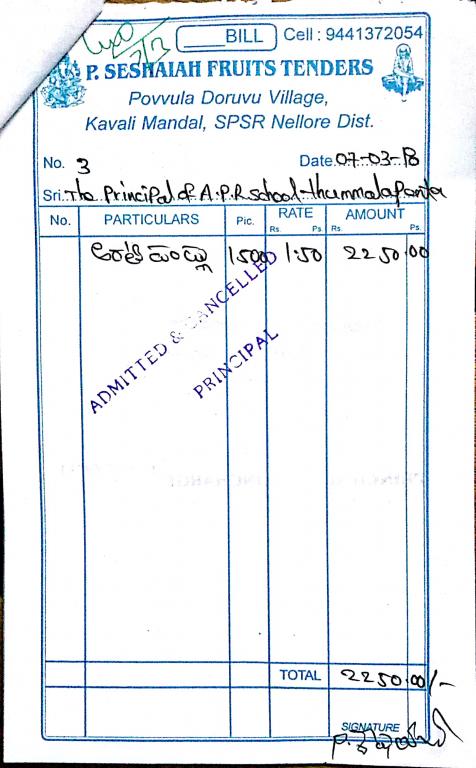 BILL Cell : 9441372054
P. SESHAIAH FRUITS TENDERS
Povvula Doruvu Village,
Kavali Mandal, SPSR Nellore Dist.
No. 3 Date. 07-03-18
Sri. The Principal of A.P.R school-thummalapenta
No. PARTICULARS Pic. RATE AMOUNT
Rs. Ps Rs. Ps
అరటి పండ్లు 1500 1.50 2250.00
ADMITTED & CANCELLED
PRINCIPAL
TOTAL 2250.00/-
SIGNATURE